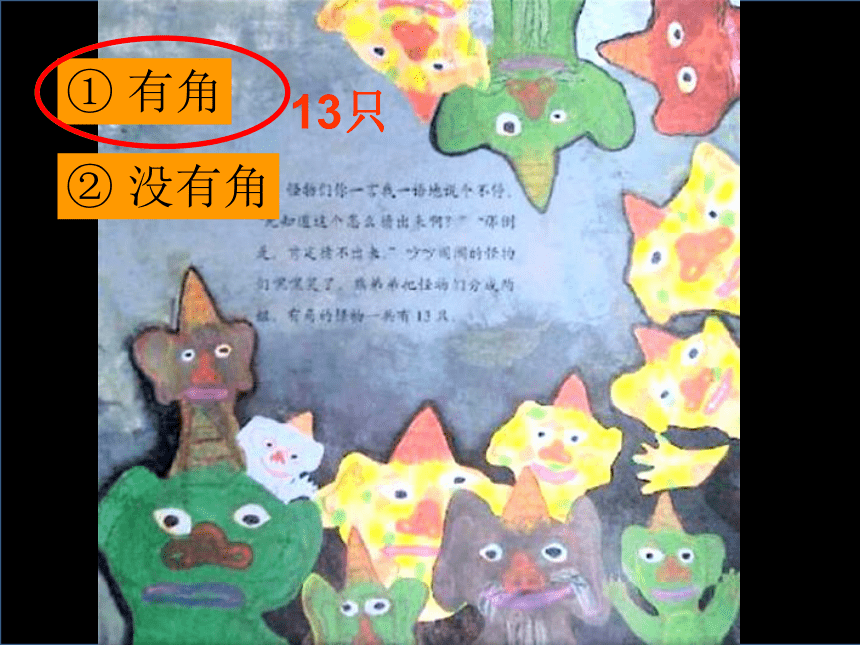 ① 有角
13只
② 没有角
怪物们你一言我一语地说个不停。
"先知道这个怎么猜出来啊?" "那倒
是,肯定猜不出来。" 吵吵闹闹的怪物
们嘿嘿笑了。熊弟弟把怪物们分成两
组,有角的怪物一共有 13 只。